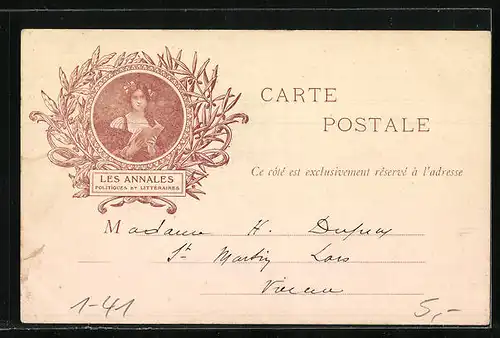 CARTE
POSTALE
LES ANNALES
POLITIQUES ET LITTÉRAIRES
Ce côté est exclusivement réservé à l'adresse
Madame H. Dupuy
St Martin Lars
1-41
5,-